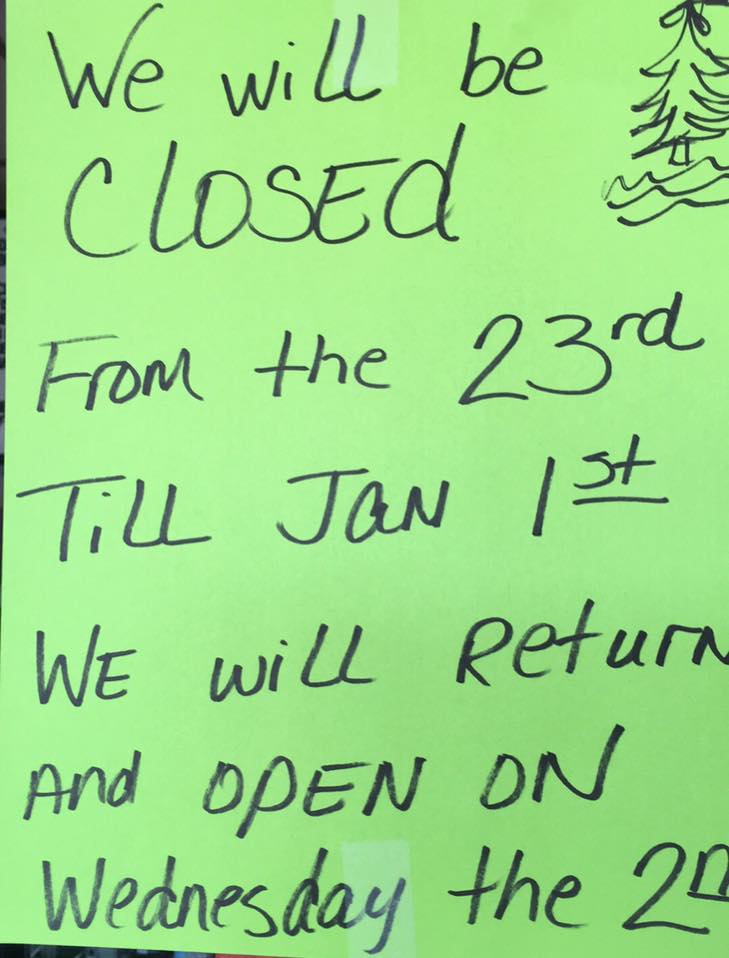 We will be
ClOSEd
From the 23rd
TiLL JaN 1st
WE wiLL Return
And OPEN ON
Wednesday the 2n